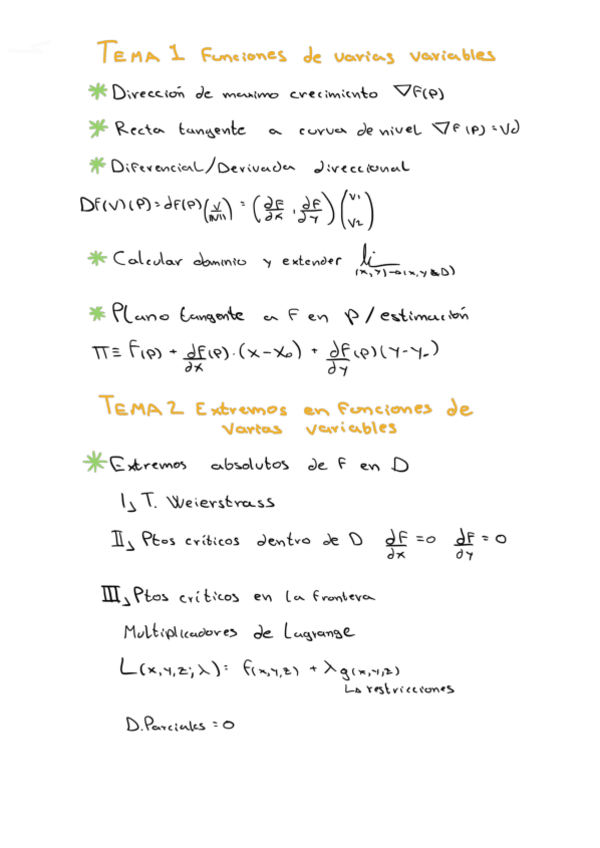 TEMA 1 Funciones de varias variables
* Dirección de maximo crecimiento ∇F(P)
* Recta tangente a curva de nivel ∇F(P)=Vd
* Diferencial/Derivada direccional
DF(V)(P)=dF(P)(V/||V||) = (∂F/∂x, ∂F/∂y)(V1 V2)
* Calcular dominio y extender
* Plano tangente a F en P/estimación
π≡ F(P) + ∂F/∂x(P)·(x-x₀) + ∂F/∂y(P)(y-y₀)
TEMA 2 Extremos en Funciones de
varias variables
* Extremos absolutos de F en D
I, T. Weierstrass
II, Ptos críticos dentro de D ∂F/∂x=0 ∂F/∂y=0
III, Ptos críticos en la frontera
Multiplicadores de Lagrange
L(x,y,z;λ)= f(x,y,z) + λg(x,y,z)
↳ restricciones
D.Parciales=0